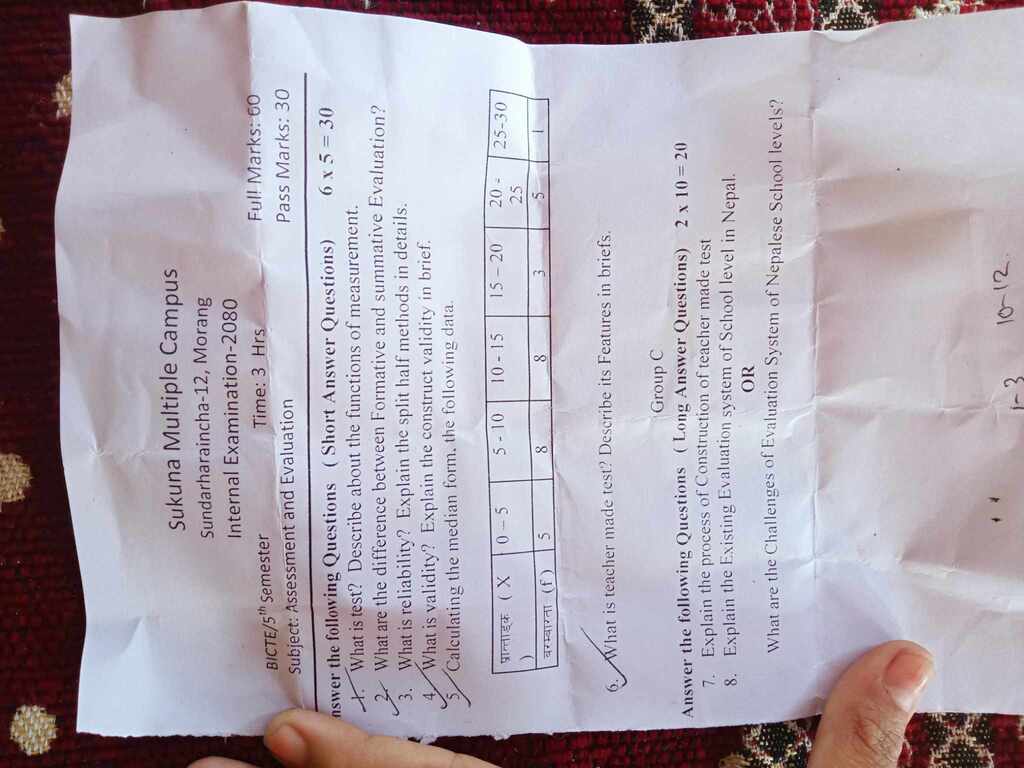 Sukuna Multiple Campus
Sundarharaincha-12, Morang
Internal Examination-2080
BICTE/5th Semester Time: 3 Hrs Full Marks: 60
Subject: Assessment and Evaluation Pass Marks: 30
nswer the following Questions ( Short Answer Questions) 6 x 5 = 30
1. What is test? Describe about the functions of measurement.
2. What are the difference between Formative and summative Evaluation?
3. What is reliabilty? Explain the split half methods in details.
4. What is validity? Explain the construct validity in brief.
5. Calculating the median form, the following data.
प्राप्ताङ्क ( X ) 0 – 5 5 - 10 10 - 15 15 – 20 20 - 25 25-30
बारम्बारता (f) 5 8 8 3 5 1
6. What is teacher made test? Describe its Features in briefs.
Group C
Answer the following Questions ( Long Answer Questions) 2 x 10 = 20
7. Explain the process of Construction of teacher made test
8. Explain the Existing Evaluation system of School level in Nepal.
OR
What are the Challenges of Evaluation System of Nepalese School levels?
1-3 10-12